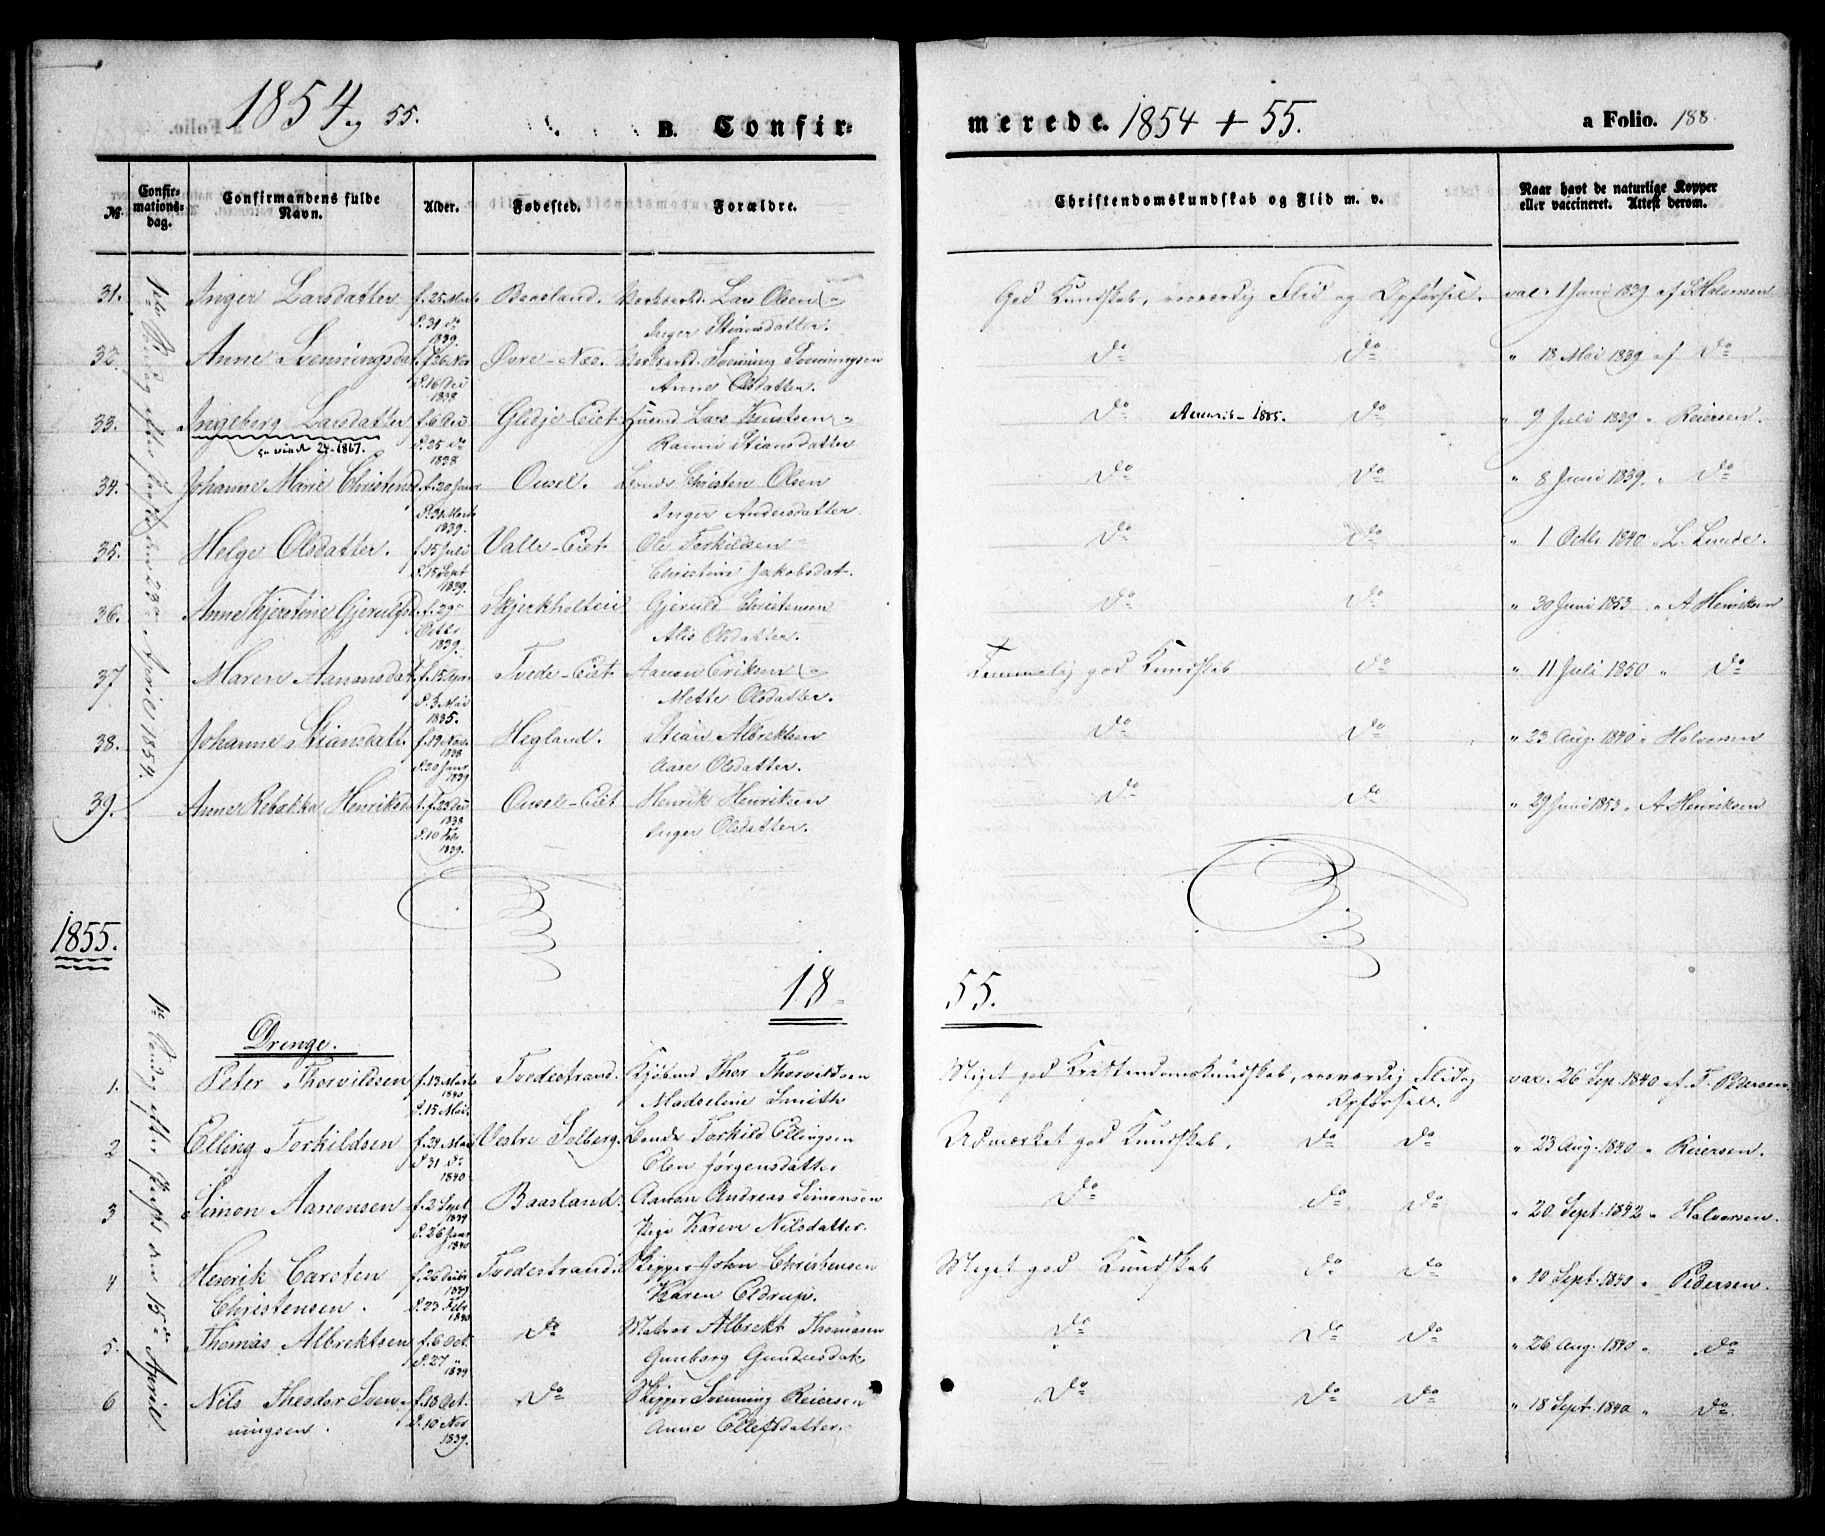 1854 og 55.
B. Confirmerede. 1854 + 55.
a Folio. 188
№
Confirmations-dag.
Confirmandens fulde Navn.
Alder.
Fødested.
Forældre.
Christendomskundskab og Flid m. v.
Naar havt de naturlige Kopper eller vaccineret. Attest derom.
1ste Søndag efter Paaske den 23de April 1854.
31. Inger Larsdatter f. 25 Marts Baasland. Lars Olsen God Kundskab, roesværdig Flid og Opførsel. vac. 1 Juni 1839 af Halvorsen
d. 31 do 1839. Inger Stiansdatter.
32. Anne Svenningsdat. f. 26 Nov Øvre-Næs. Svenning Svenningsen do do " 18 Mai 1839 af do
d. 16 Dec 1838 Anne Olsdatter.
33. Ingeborg Larsdatter f. 6 Dec Gledje-Eiet Lars Knutsen do 1885. do " 9 Juli 1839 " Reiersen.
24-1867. d. 25 do 1838 Stiansdatter
34. Johanne Marie Christensd. f. 20 Janr Ousel. Christen Olsen do do " 8 Juni 1839. " do
d. 31 Marts 1839. Inger Andersdatter
35. Helge Olsdatter. f. 15 Juli Valle-Eiet Ole Torkildsen do do " 1 Octbr 1840 " L. Lunde.
d. 15 Sept 1839. Christine Jakobsdat.
36. Anne Kjerstine Gjeruldsd. f. 29 Octbr 1839. Skjerkholten Gjeruld Christensen do do " 30 Juni 1853 " A Henriksen
Alis Olsdatter.
37 Maren Aanonsdat. f. 15 Apr. Tvede-Eiet Aanon Eriksen Temmelig god Kundskab do " 11 Juli 1850 " do
d. 3 Mai 1835. Mette Olsdatter.
38. Johanne Stiansdatt. f. 19 Nov. 1838 Hegland. Stian Albrektsen do do " 23 Aug. 1840 " Halvorsen
d. 20 Janr 1839 Aase Olsdatter.
39. Anne Rebekka Henriksdat. f. 25 Dec 1838 Ousel-Eiet Henrik Henriksen do do " 29 Juni 1853 " A Henriksen
d. 10 Febr 1839. Inger Olsdatter.
1855.
18 55.
1ste Søndag efter Paaske den 15de April
Drenge.
1. Peter Thorvildsen f. 13 Marts 1840 Tvedestrand. Thor Thorvildsen Meget god Kristendomskundskab, roesværdig Flid og Opførsel. vac. 26 Sep. 1840 af T. Pedersen.
d. 15 Mai Madselene Smith
2 Elling Torkildsen f. 24 Mai Vestre Solberg. Torkild Ellingsen Udmærket god Kundskab. do do " 23 Aug. 1840 " Reiersen.
d. 31 do 1840 Elen Jørgensdatter
3 Simon Aanonsen f. 2 Sept 1839 Baasland. Aanon Andreas Simonsen do do do " 20 Sept. 1842 " Halvorsen.
d. 26 Janr 1840 Karen Nilsdatter.
4 Henrik Carsten Christensen. f. 26 Decbr 1839 Tvedestrand. Skipper John Christensen Meget god Kundskab do do " 10 Sept. 1840 " Pedersen.
d. 23 Febr 1840 Karen Eldrup.
5. Thomas Albrektsen f. 6 Oct. do Matros Albrekt Thomasen do do do " 26 Aug. 1840 " do
d. 27 " 1839 Gunborg Gundersdat.
6 Nils Theodor Svenningsen. f. 18 Oct. do Skipper Svenning Reiersen do do do " 18 Sept. 1840 " do
d. 10 Nov 1839. Anne Ellefsdatter.